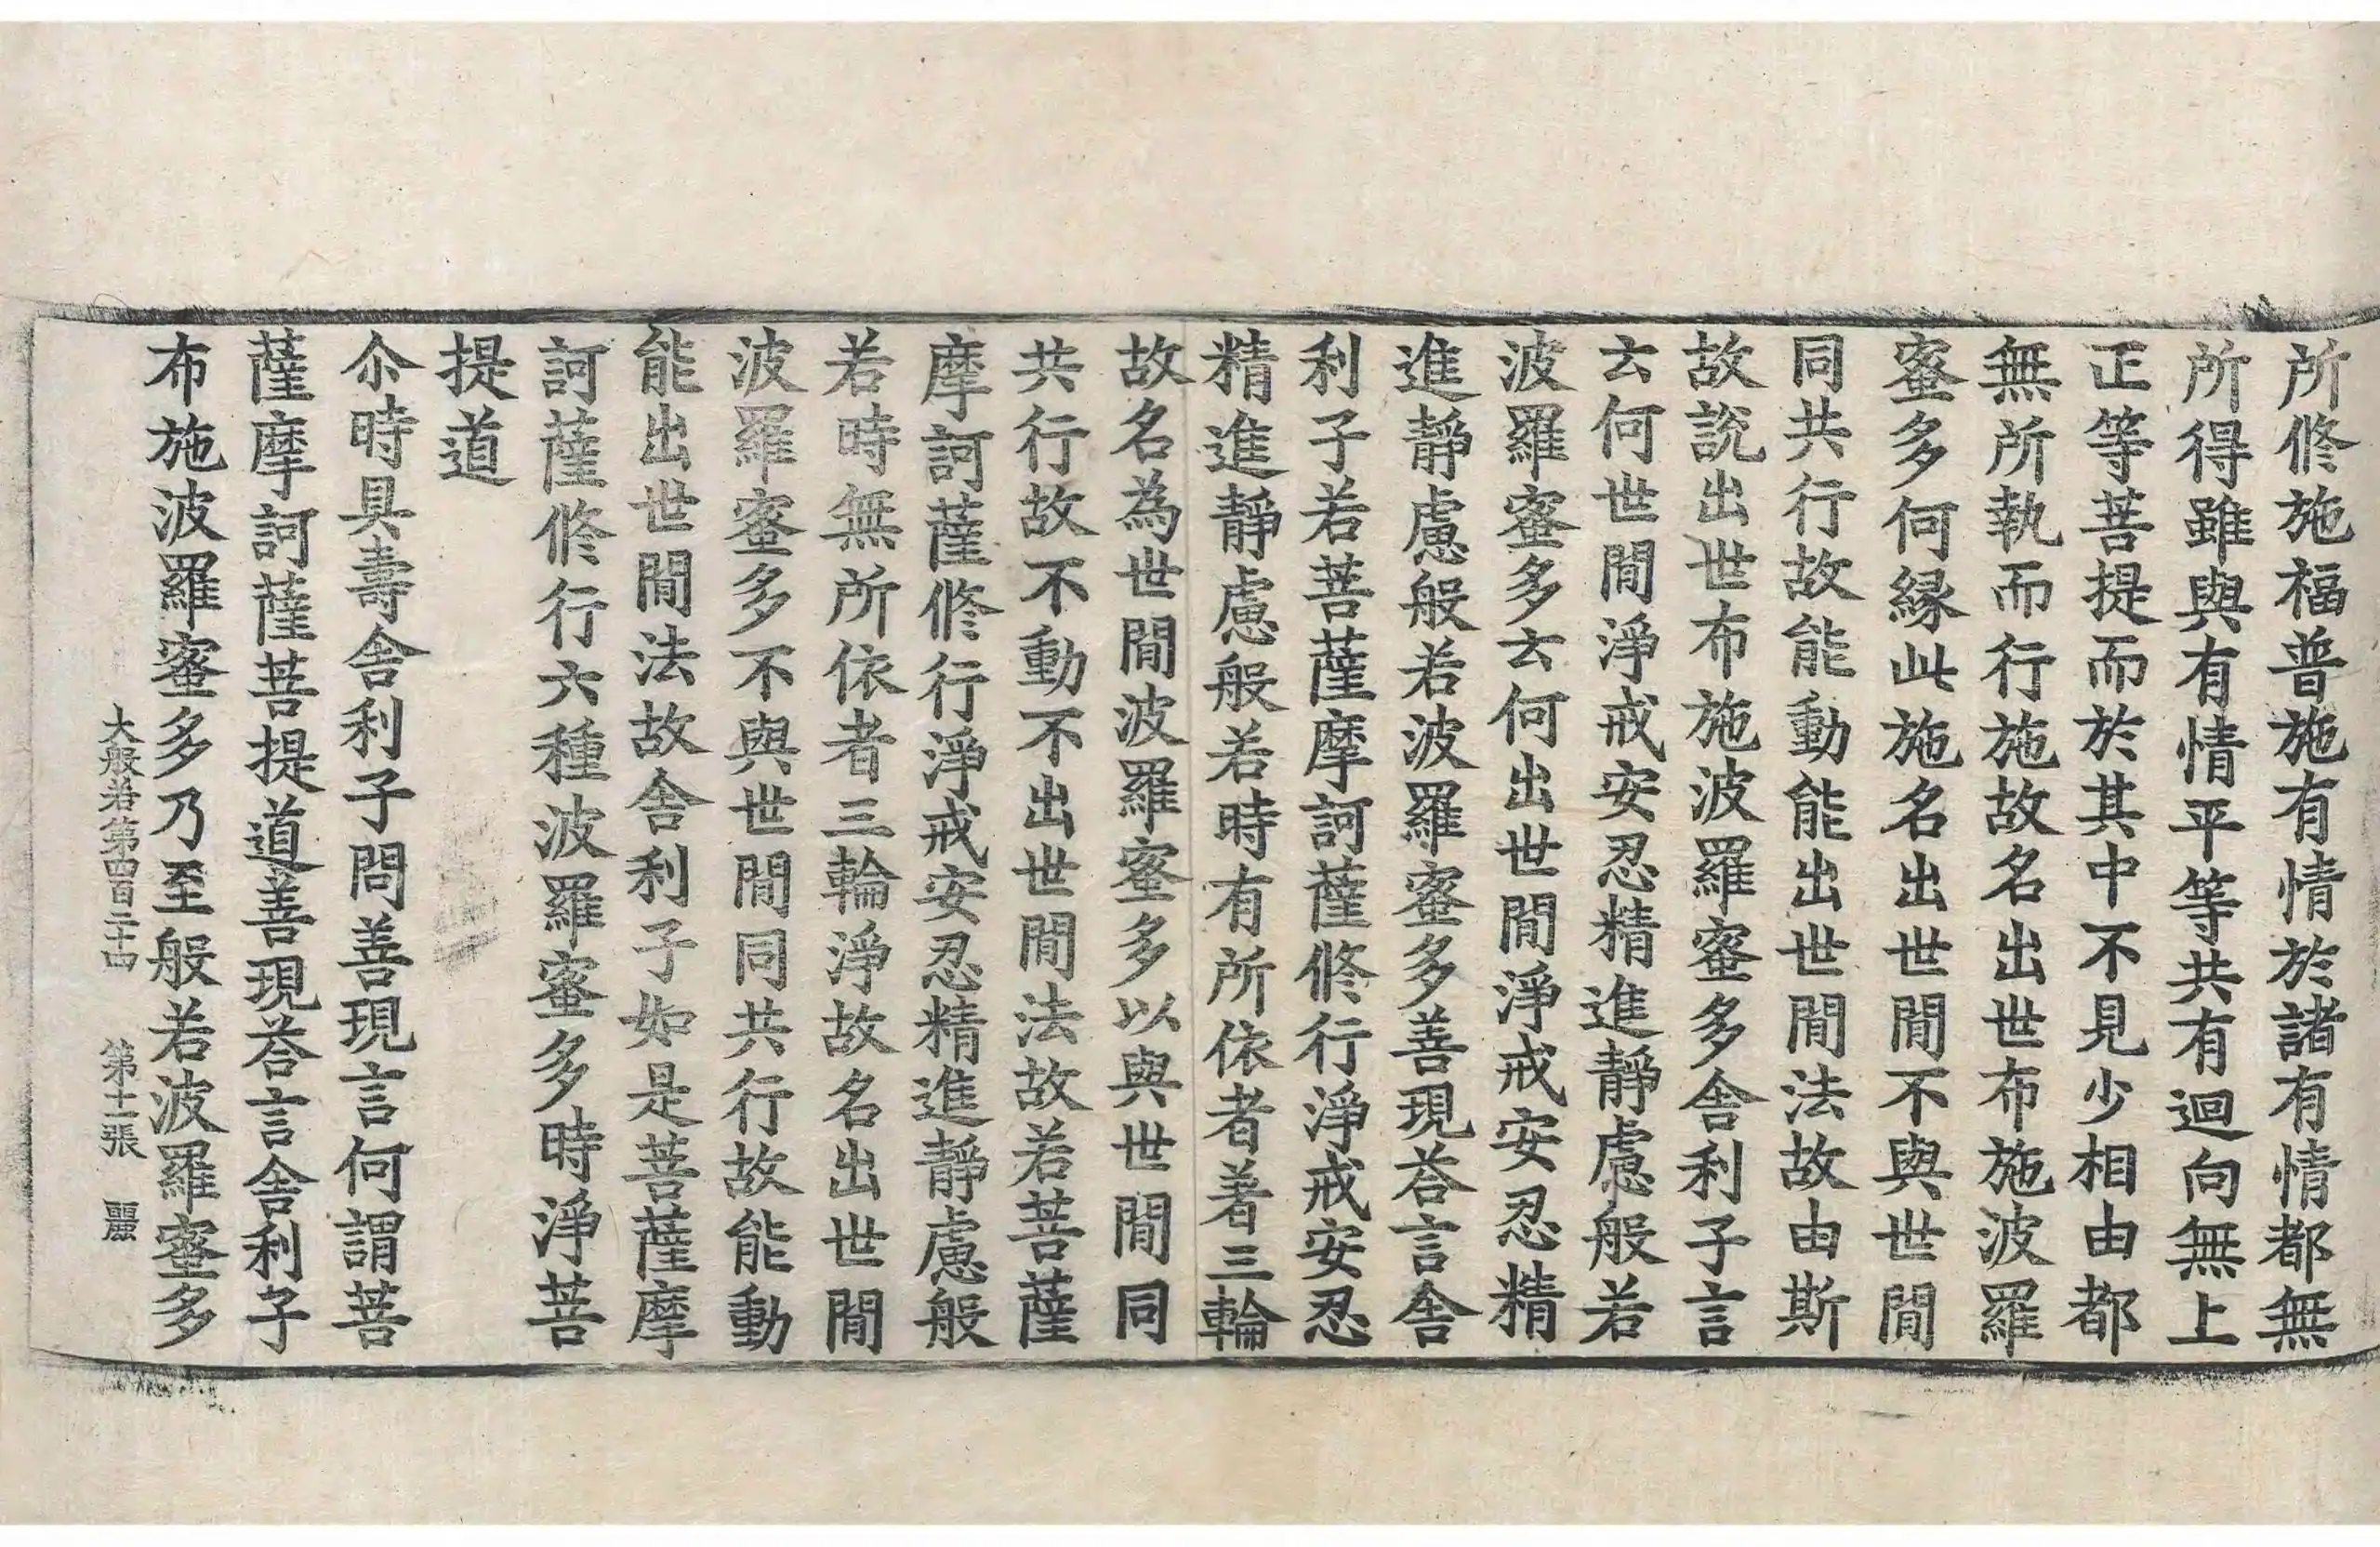 所修施福普施有情於諸有情都無
所得雖與有情平等共有迴向無上
正等菩提而於其中不見少相由都
無所執而行施故名出世布施波羅
蜜多何緣此施名出世間不與世間
同共行故能動能出世間法故由斯
故說出世布施波羅蜜多舍利子言
云何世間淨戒安忍精進靜慮般若
波羅蜜多云何出世間淨戒安忍精
進靜慮般若波羅蜜多善現荅言舍
利子若菩薩摩訶薩修行淨戒安忍
精進靜慮般若時有所依者著三輪
故名為世間波羅蜜多以與世間同
共行故不動不出世間法故若菩薩
摩訶薩修行淨戒安忍精進靜慮般
若時無所依者三輪淨故名出世間
波羅蜜多不與世間同共行故能動
能出世間法故舍利子如是菩薩摩
訶薩修行六種波羅蜜多時淨菩
提道
尒時具壽舍利子問善現言何謂菩
薩摩訶薩菩提道善現荅言舍利子
布施波羅蜜多乃至般若波羅蜜多
大般若第四百二十四 第十二張 麗